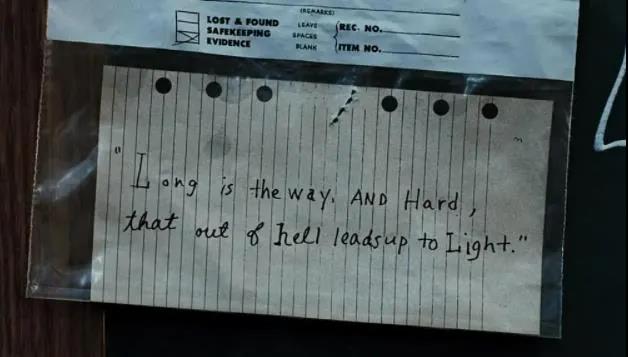 (REMARKS)
LOST & FOUND
SAFEKEEPING
EVIDENCE
LEAVE
SPACES
BLANK
REC. NO.
ITEM NO.
"Long is the way, AND Hard,
that out of hell leads up to Light."